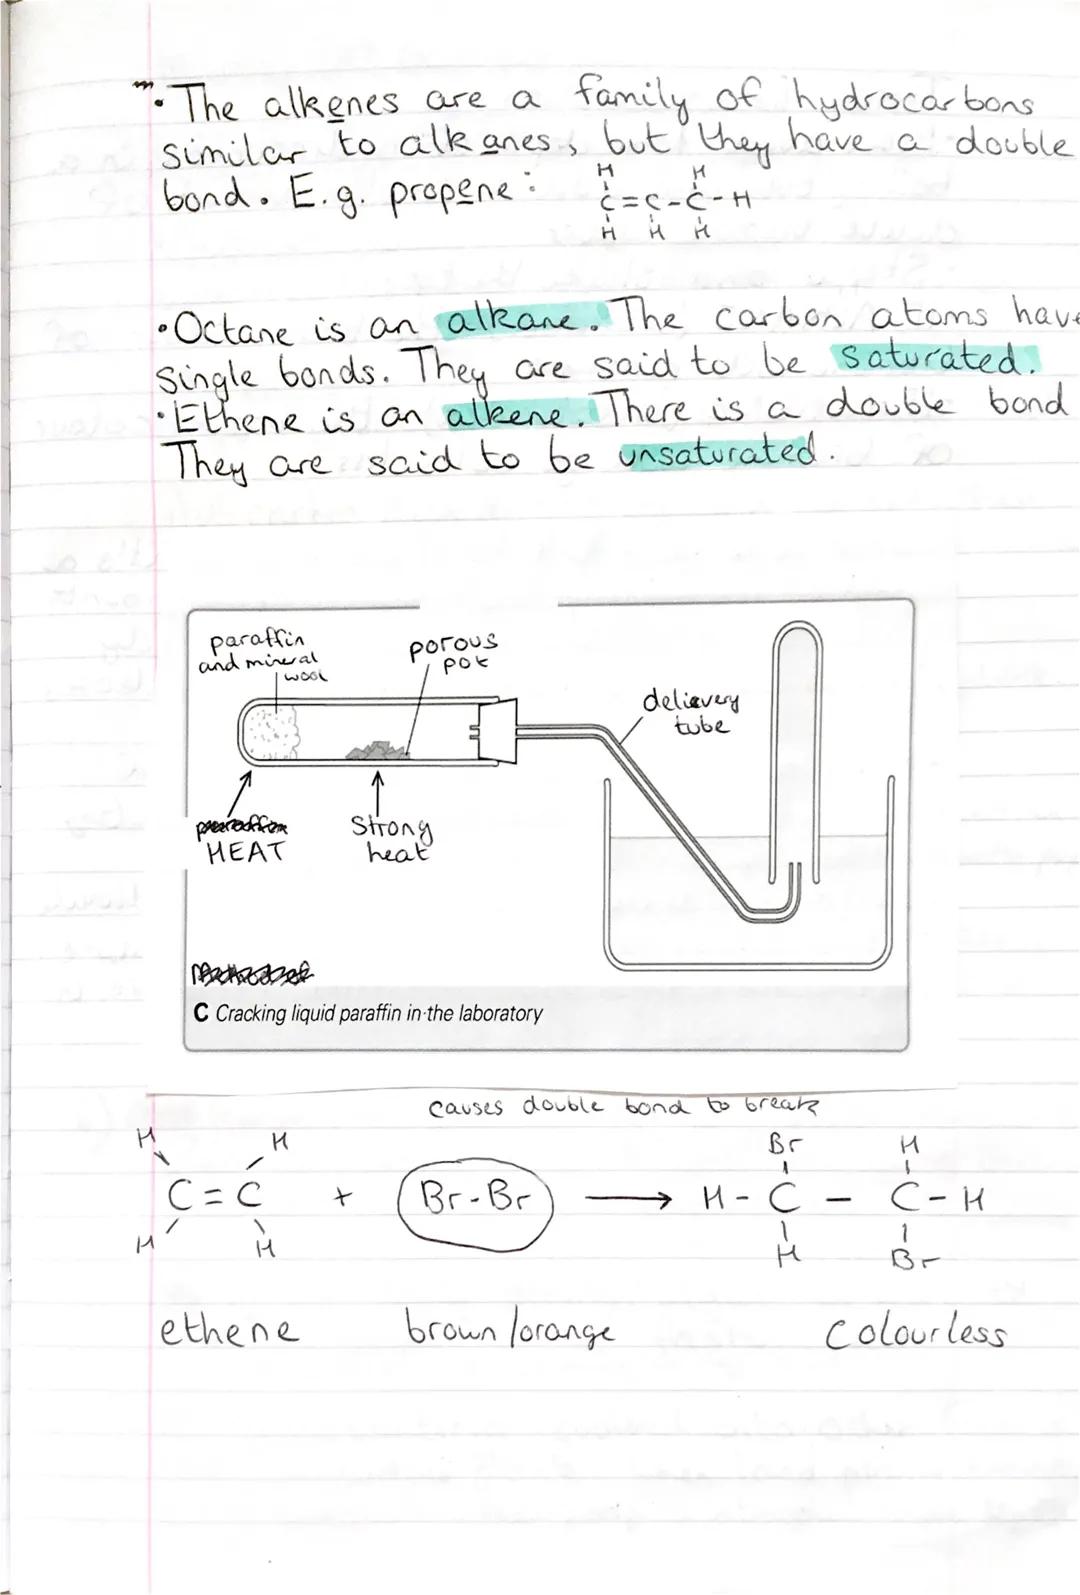 • The alkenes are a family of hydrocarbons
similar to alkanes, but they have a double
bond. E.g. propene:
H H
C=C-C-H
H H H
• Octane is an alkane. The carbon atoms have
single bonds. They are said to be saturated.
• Ethene is an alkene. There is a double bond
They are said to be unsaturated.
paraffin
and mineral
wool
porous
pot
delievery
tube
HEAT
Strong
heat
C Cracking liquid paraffin in the laboratory
causes double bond to break
H H Br H
C = C + Br-Br → H - C - C - H
H H H Br
ethene brown/orange colourless